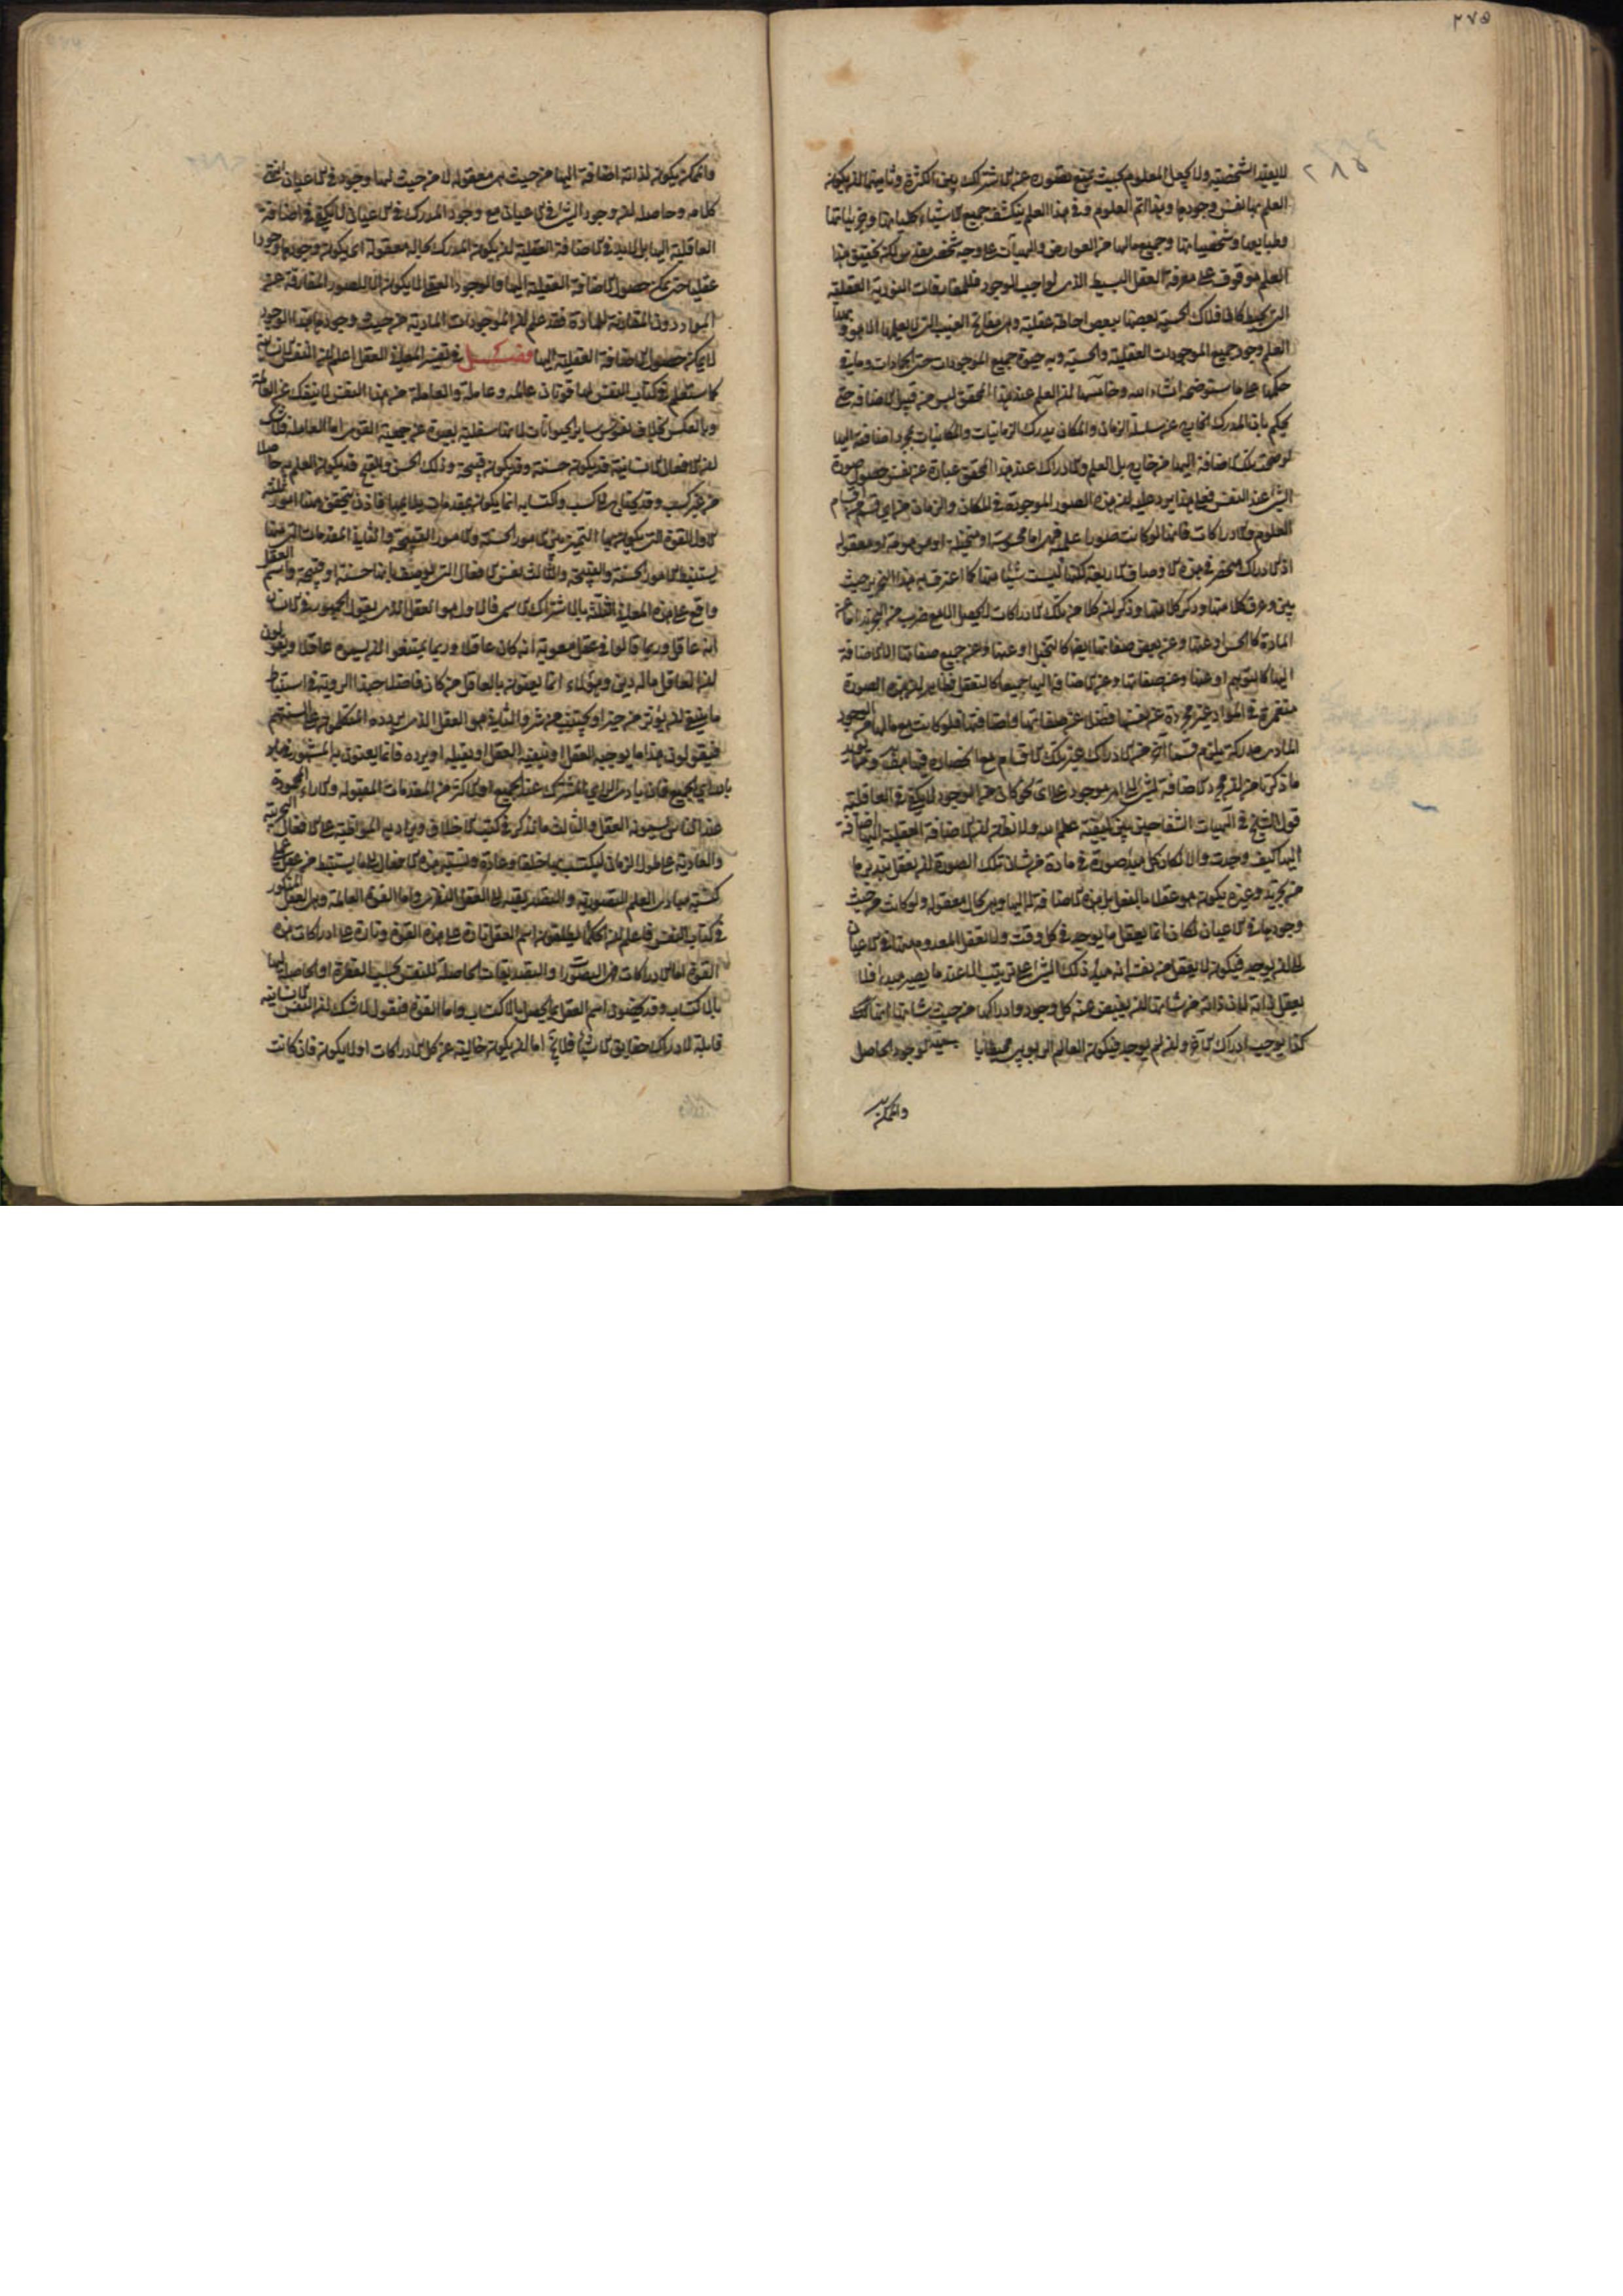 ٢٧٥
٢٨٥
لا يفيد الشخصية ولا يجعل المعلوم بحيث يمنع تصوره عن الاشتراك بين الكثرة وثانيتهما ان يكون
العلم بها نفس وجودها وهذا اتم العلوم وفي هذا العلم ينكشف جميع الاشياء كلياتها وجزئياتها
وطبايعها وشخصياتها وجميع مالها من العوارض والهيآت على وجه شخصي مقدس لكن تحقيق هذا
العلم موقوف على معرفة العقل البسيط الذي لواجب الوجود وللمفارقات النورية العقلية
التي تحيط كالافلاك الحسية بعضها ببعض احاطة عقلية وهي مفاتح الغيب التي لا يعلمها الا هو و بهذا
العلم وجود جميع الموجودات العقلية والحسية وبه حيوة جميع الموجودات حتى الجمادات وما في
حكمها على ما ستوضحه انشاء الله وخامسها ان العلم عند هذا المحقق ليس من قبيل الاضافة حتى
يحكم بان المدرك الخارج عن سلسلة الزمان والمكان يدرك الزمانيات والمكانيات بمجرد اضافته اليها
لو صحت تلك الاضافة اليها من خارج بل العلم والادراك عند هذا المحقق عبارة عن نفس حصول صورة
الشئ عند النفس فعلى هذا يرد عليه ان هذه الصور الموجودة في المكان والزمان من اي قسم من اقسام
العلوم والادراكات فانها لو كانت صورا علمية فهي اما محسوسة او متخيلة او موهومة او معقولة
اذ الادراك منحصر في هذه الاوصاف الاربعة لكنها ليست شيئا منها كما اعترف به هذا النحرير حيث
بين وعرف كلا منها وذكر ان كلا من تلك الادراكات لا يحصل الا مع ضرب من التجريد اما عن
المادة كالحس او عنها وعن بعض صفاتها ايضا كالتخيل او عنها وعن جميع صفاتها الا الاضافة
اليها كالتوهم او عنها وعن صفاتها وعن الاضافة اليها جميعا كالتعقل فظاهر ان هذه الصورة
منغمرة في المواد غير مجردة عن نفسها فضلا عن صفاتها واضافتها فلو كانت مع مالها من الوجود
المادي مدركة يلزم قسما آخر من الادراك غير تلك الاقسام مع انحصاره فيها هف ومما يؤيد
ما ذكرنا من ان مجرد الاضافة لشئ الى امر موجود على اي نحو كان من الوجود لا يكفي في العاقلية
قول الشيخ في الهيات الشفا حين بين كيفية علمه مه ولا تظن ان الاضافة العقلية اليها اضافة
اليها كيف وجدت والا لكان كل مبدا صورة في مادة من شان تلك الصورة ان يعقل بتدبير ما
من تجريد وغيره يكون هو عقلا ما بالفعل بل هذه الاضافة له اليها وهي بحال معقولة ولو كانت من حيث
وجودها في الاعيان لكان انما يعقل ما يوجد في كل وقت ولا يعقل المعدوم منها في الاعيان
الى ان يوجد فيكون لا يعقل من نفسه انه مبدا ذلك الشئ على ترتيب الا عند ما يصير مبدا فلا
يعقل ذاته لان ذاته من شانها ان يفيض عنه كل وجود وادراكها من حيث شانها انها كك
كذا يوجب ادراك الآخر وان لم يوجد فيكون العالم الربوبي محيطا بالوجود الحاصل
والممكن
والممكن يكون لذاته اضافة اليها من حيث هي معقولة لا من حيث لها وجود في الاعيان انتهى
كلامه وحاصله ان وجود الشئ في الاعيان مع وجود المدرك في الاعيان لا يكفي في اضافة
العاقلية اليها بل لا بد في الاضافة العقلية ان يكون المدرك بحالة معقولة اي يكون وجودها وجودا
عقليا حتى يمكن حصول الاضافة العقلية اليها والوجود العقلي لا يكون الا للصور المفارقة عن
المواد دون المقارنة للمادة فقد علم ان الموجودات المادية من حيث وجودها هذا الوجود
لا يمكن حصول الاضافة العقلية اليها فصل في تفسير معاني العقل اعلم ان النفس الانسانية
كما ستعلم في كتاب النفس لها قوتان عالمة وعاملة والعاملة من هذا النفس لا ينفك عن العالمة
وبالعكس بخلاف نفوس ساير الحيوانات لانها سفلية بعيدة عن جمعية القوى اما العاملة فلا شك
ان الافعال الانسانية قد يكون حسنة وقد يكون قبيحة وذلك الحسن والقبح قد يكون العلم به حاصلا
من غير كسب وقد يحتاج الى كسب واكتسابه انما يكون بمقدمات يلائمها فاذن يتحقق ههنا امور ثلثة
الاول القوة التي يكون بها التمييز بين الامور الحسنة والامور القبيحة والثانية المقدمات التي منها
يستنبط الامور الحسنة والقبيحة والثالث نفس الافعال التي توصف بانها حسنة او قبيحة واسم العقل
واقع على هذه المعاني الثلثة بالاشتراك الاسمي فالاول هو العقل الذي يقول الجمهور في الانسان
انه عاقل وربما قالوا في عقل معوية انه كان عاقلا وربما يمتنعوا ان يسموه عاقلا ويقولون
ان العاقل من له دين وهؤلاء انما يعنون بالعاقل من كان فاضلا جيد الروية في استنباط
ما ينبغي ان يؤثر من خير او يجتنب من شر والثاني هو العقل الذي يردده المتكلمون على السنتهم
فيقولون هذا ما يوجبه العقل او ينفيه العقل او يقبله او يرده فانما يعنون به المشهور في بادي
بادي الجميع فان بادي الرأي المشترك عند الجميع او الاكثر من المقدمات المقبولة والاراء المحمودة
عند الناس يسمونه العقل والثالث ما يذكر في كتب الاخلاق ويراد به المواظبة على الافعال التجربية
والعادية على طول الزمان ليكتسب بها خلقا وعادة ونسبة هذه الافعال الى ما يستنبط من عقل عملي
كنسبة مبادي العلم التصورية والتصديقية الى العقل النظري واما القوة العالمة وهي العقل المذكور
في كتاب النفس فاعلم ان الحكما يطلقون اسم العقل تارة على هذه القوة وتارة على ادراكات هذه
القوة اما الادراكات فهي التصورات والتصديقات الحاصلة للنفس بحسب الفطرة او الحاصلة لها
بالاكتساب وقد يخصون اسم العقل بما يحصل بالاكتساب واما القوة فنقول لا شك ان النفس الانسانية
قابلة لادراك حقايق الاشياء فلا يخ اما ان يكون خالية عن كل الادراكات او لا يكون فان كانت